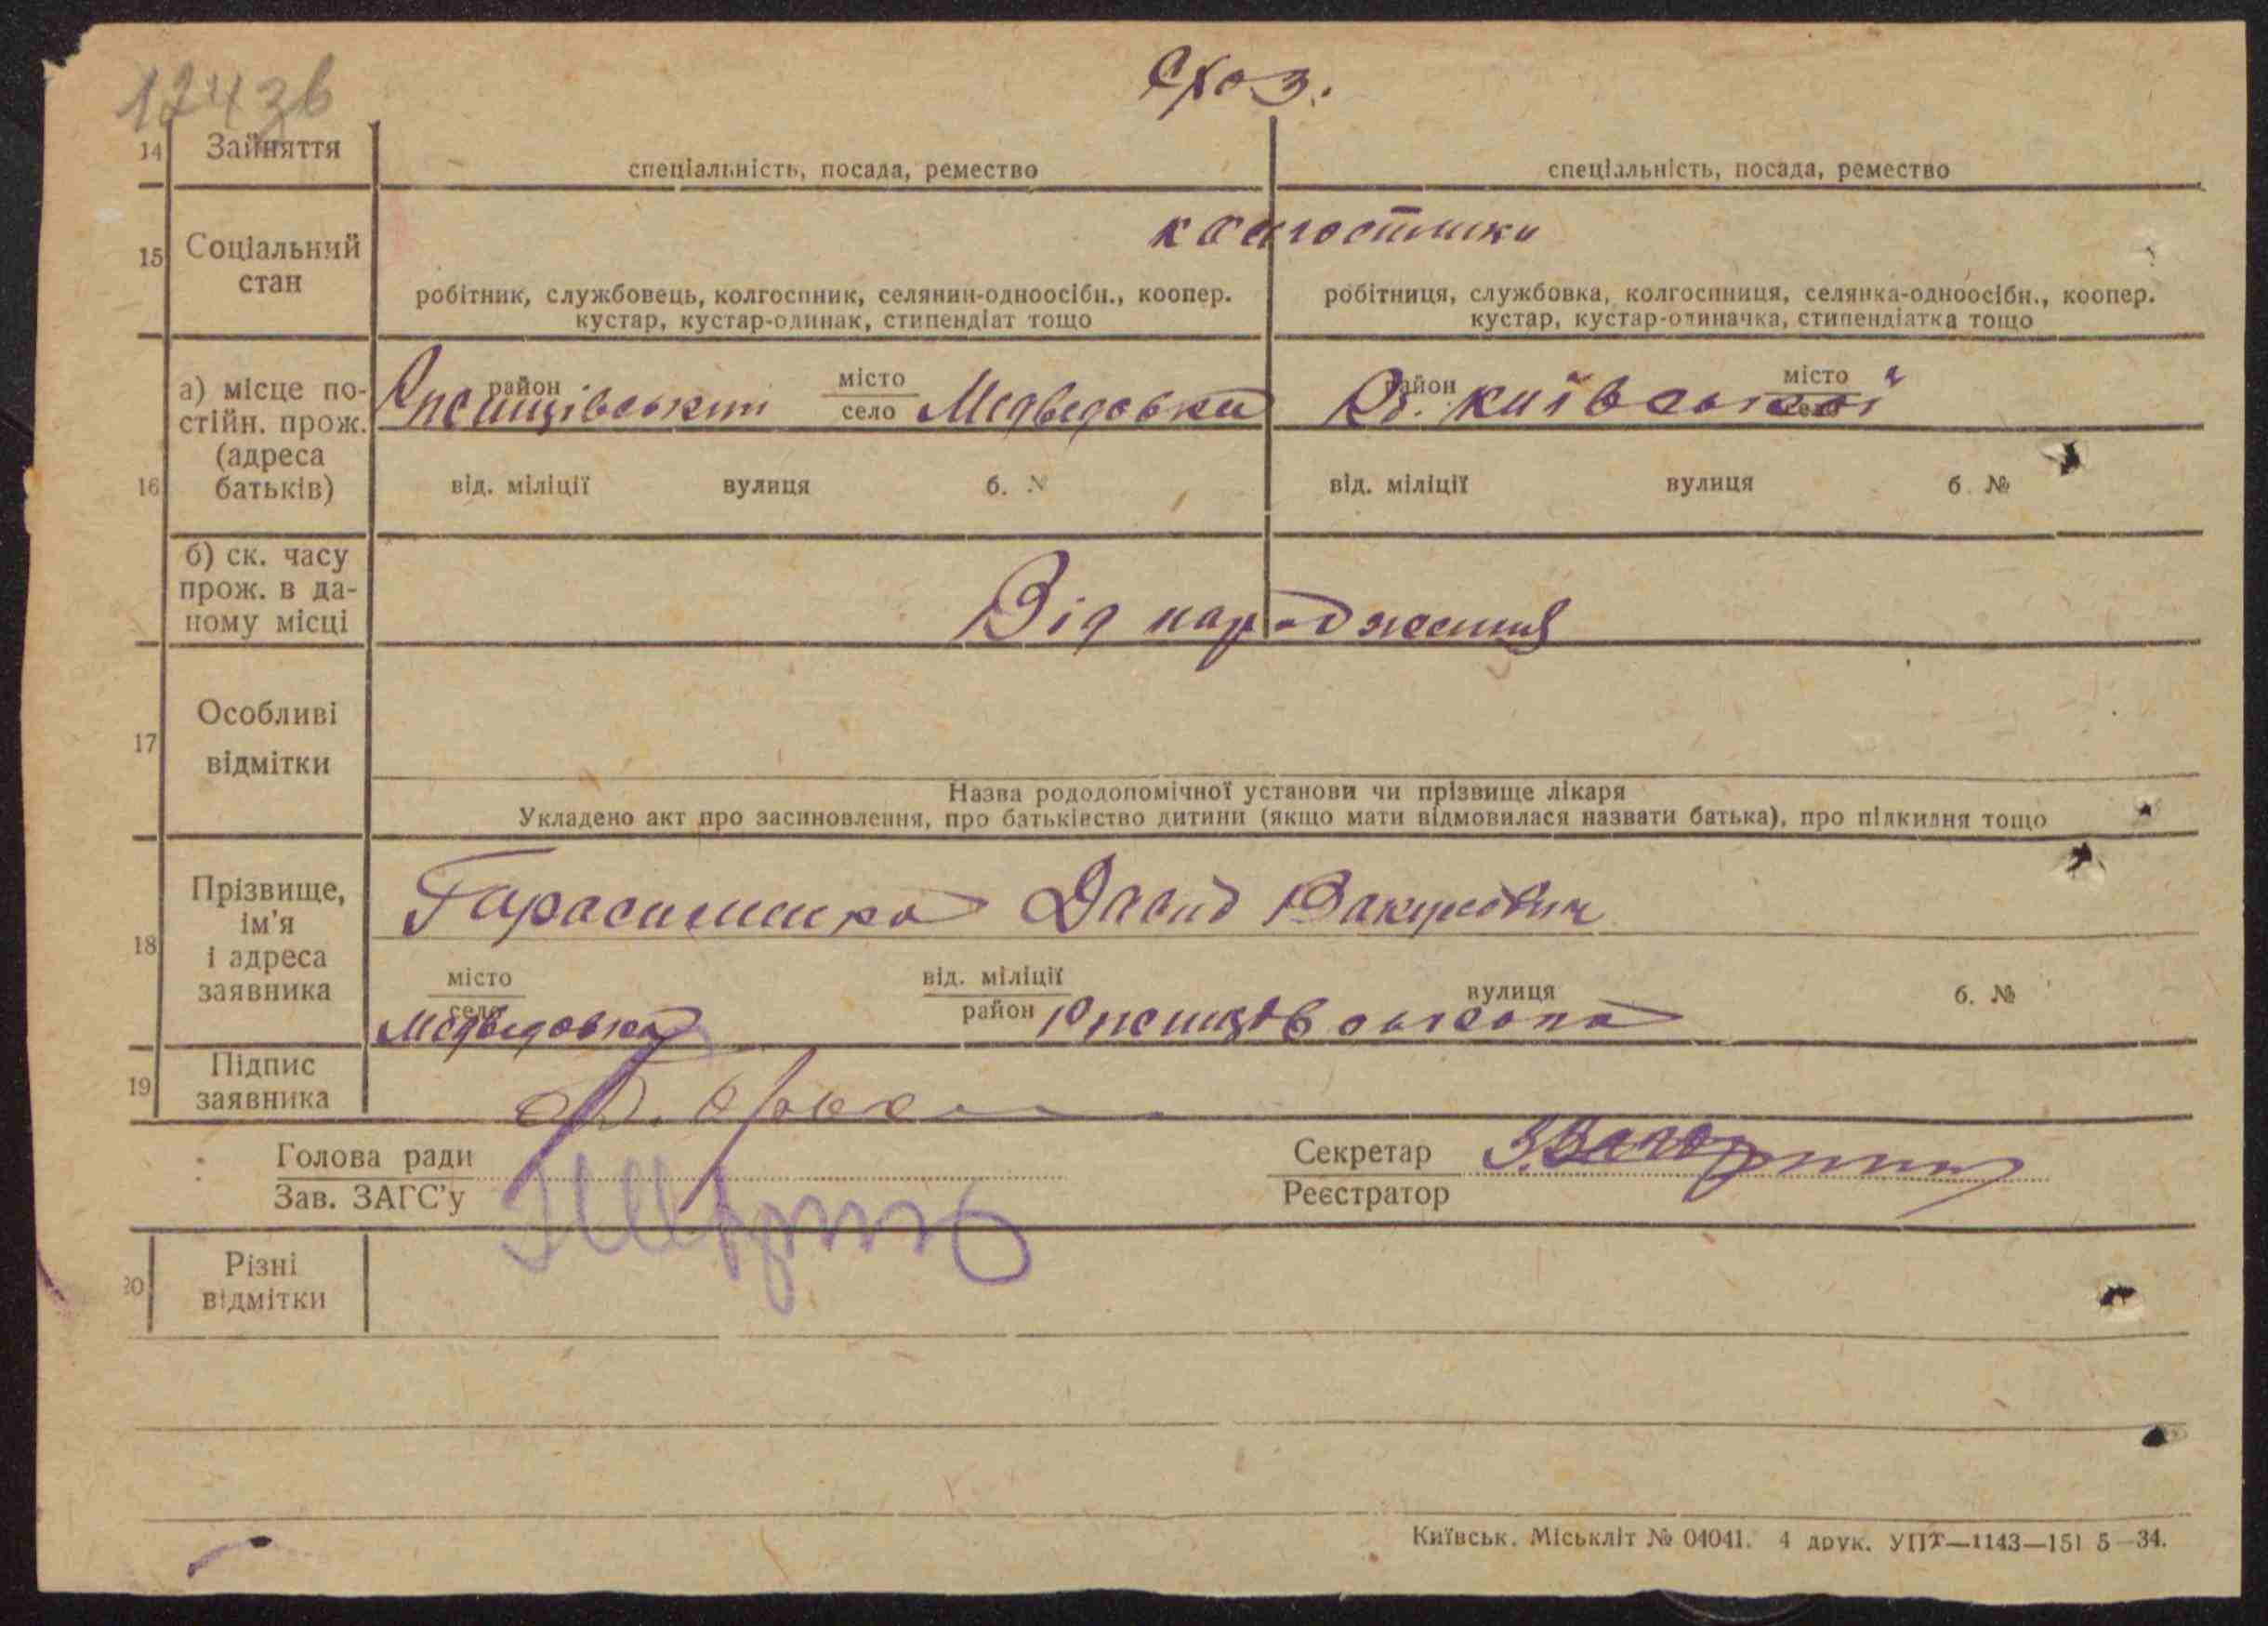 124 зв
Схоз.
14 Зайняття
спеціальність, посада, ремество спеціальність, посада, ремество
15 Соціальний стан
колгоспники
робітник, службовець, колгоспник, селянин-одноосібн., коопер. кустар, кустар-одинак, стипендіат тощо
робітниця, службовка, колгоспниця, селянка-одноосібн., коопер. кустар, кустар-одиначка, стипендіатка тощо
16 а) місце по-
стійн. прож.
(адреса
батьків)
район місто село Медведовка
район Об. Київської місто село
від. міліції вулиця б. № від. міліції вулиця б. №
б) ск. часу
прож. в да-
ному місці
Від народження
17 Особливі
відмітки
Назва рододопомічної установи чи прізвище лікаря
Укладено акт про засиновлення, про батьківство дитини (якщо мати відмовилася назвати батька), про підкидня тощо
18 Прізвище,
ім'я
і адреса
заявника
Гарасименко Давид Вакумович
місто від. міліції вулиця б. №
село Медведовка район
19 Підпис
заявника
Голова ради Секретар
Зав. ЗАГС'у Реєстратор
20 Різні
відмітки
Київськ. Міськліт № 04041. 4 друк. УПТ—1143—151 5—34.